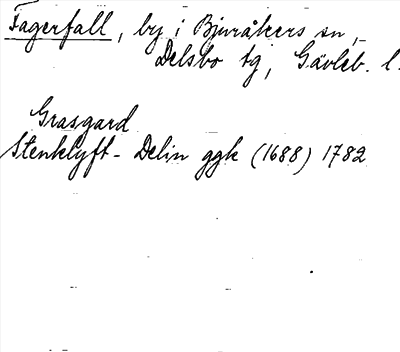 Fagerfall, by i Bjuråkers sn,
Delsbo tg, Gävleb. l.
Grasgard
Stenklyft - Delin ggk (1688) 1782